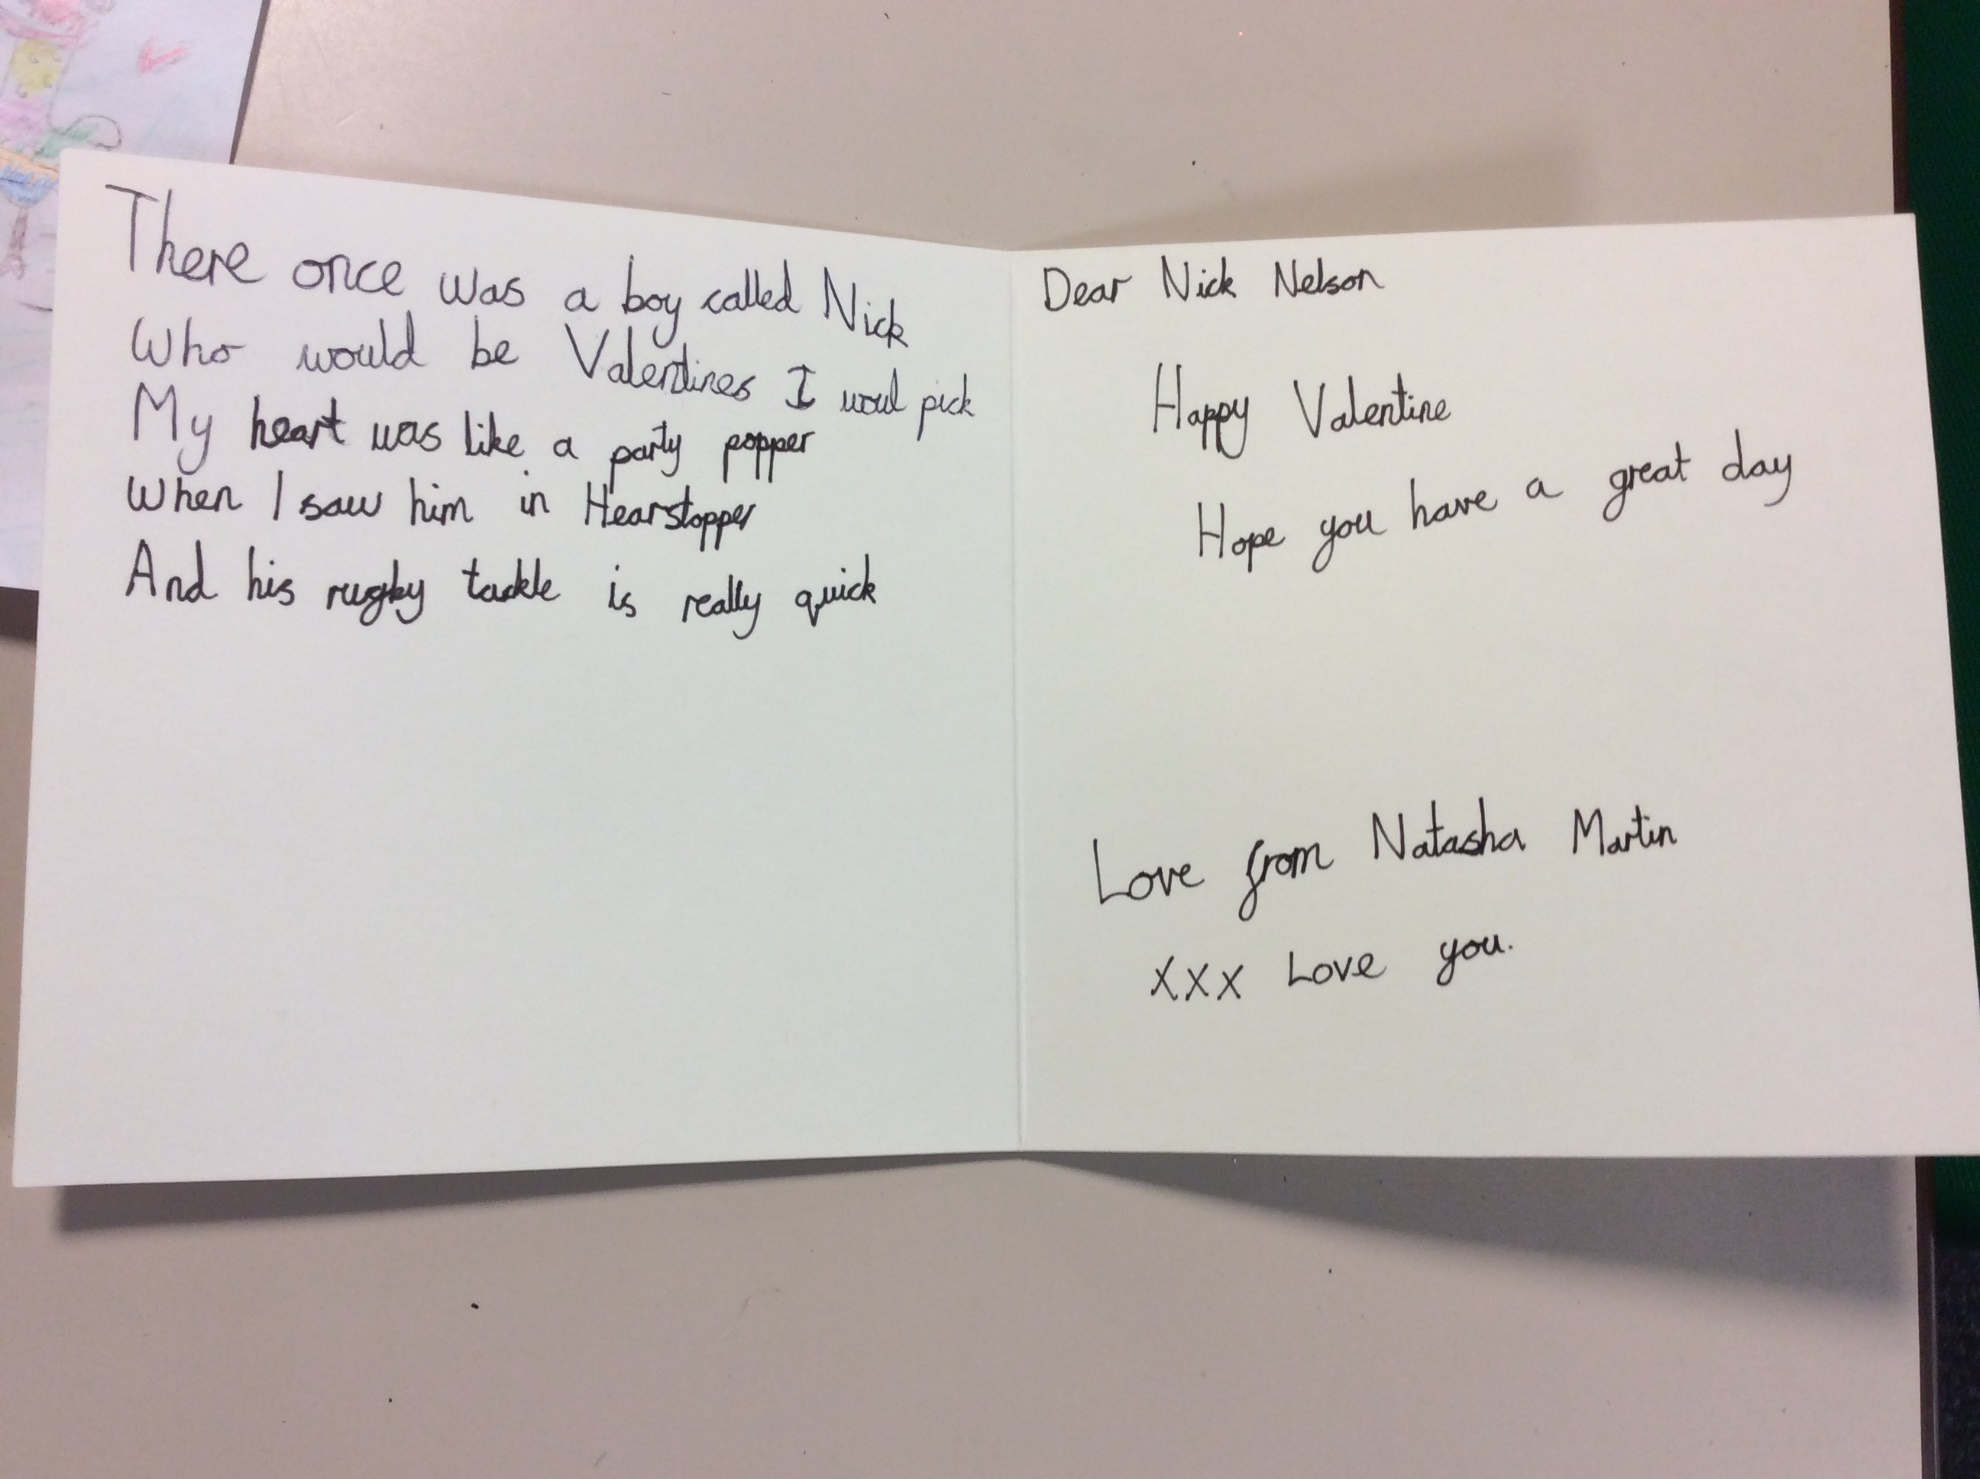 There once was a boy called Nick
Who would be Valentines I woul pick
My heart was like a party popper
When I saw him in Hearstopper
And his rugby tackle is really quick
Dear Nick Nelson
Happy Valentine
Hope you have a great day
Love from Natasha Martin
xxx Love you.